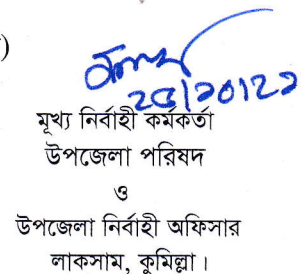 )
২৫/১০/২১
মূখ্য নির্বাহী কর্মকর্তা
উপজেলা পরিষদ
ও
উপজেলা নির্বাহী অফিসার
লাকসাম, কুমিল্লা।